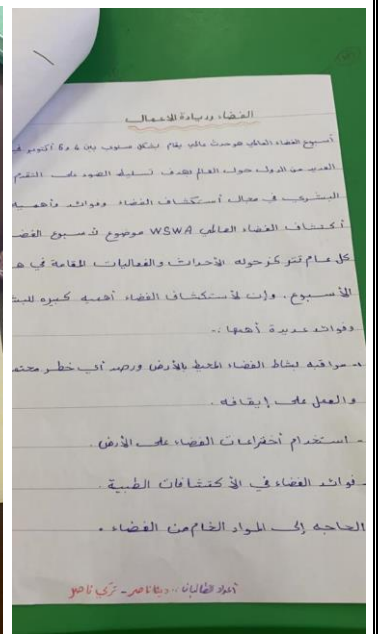 الفضاء وريادة الاعمال
أسبوع الفضاء العالمي هو حدث عالمي يقام بشكل سنوي بين 4 و 6 أكتوبر في
العديد من الدول حول العالم بهدف تسليط الضوء على التقدم
البشري في مجال أستكشاف الفضاء وفوائد وأهميه
أكتشاف الفضاء العالمي WSWA موضوع لأسبوع الفض
كل عام تتركز حوله الأحداث والفعاليات المقامة في ه
الأسبوع. وإن لأستكشاف الفضاء أهميه كبيره للبش
وفوائد عديدة أهمها :-
- مراقبه نشاط الفضاء المحيط بالأرض ورصد أي خطر محتم
والعمل على إيقافه.
- استخدام أختراعات الفضاء على الأرض.
- فوائد الفضاء في الأكتشافات الطبية.
الحاجه إلى المواد الخام من الفضاء.
أعداد الطالبات ناصر - ناصر